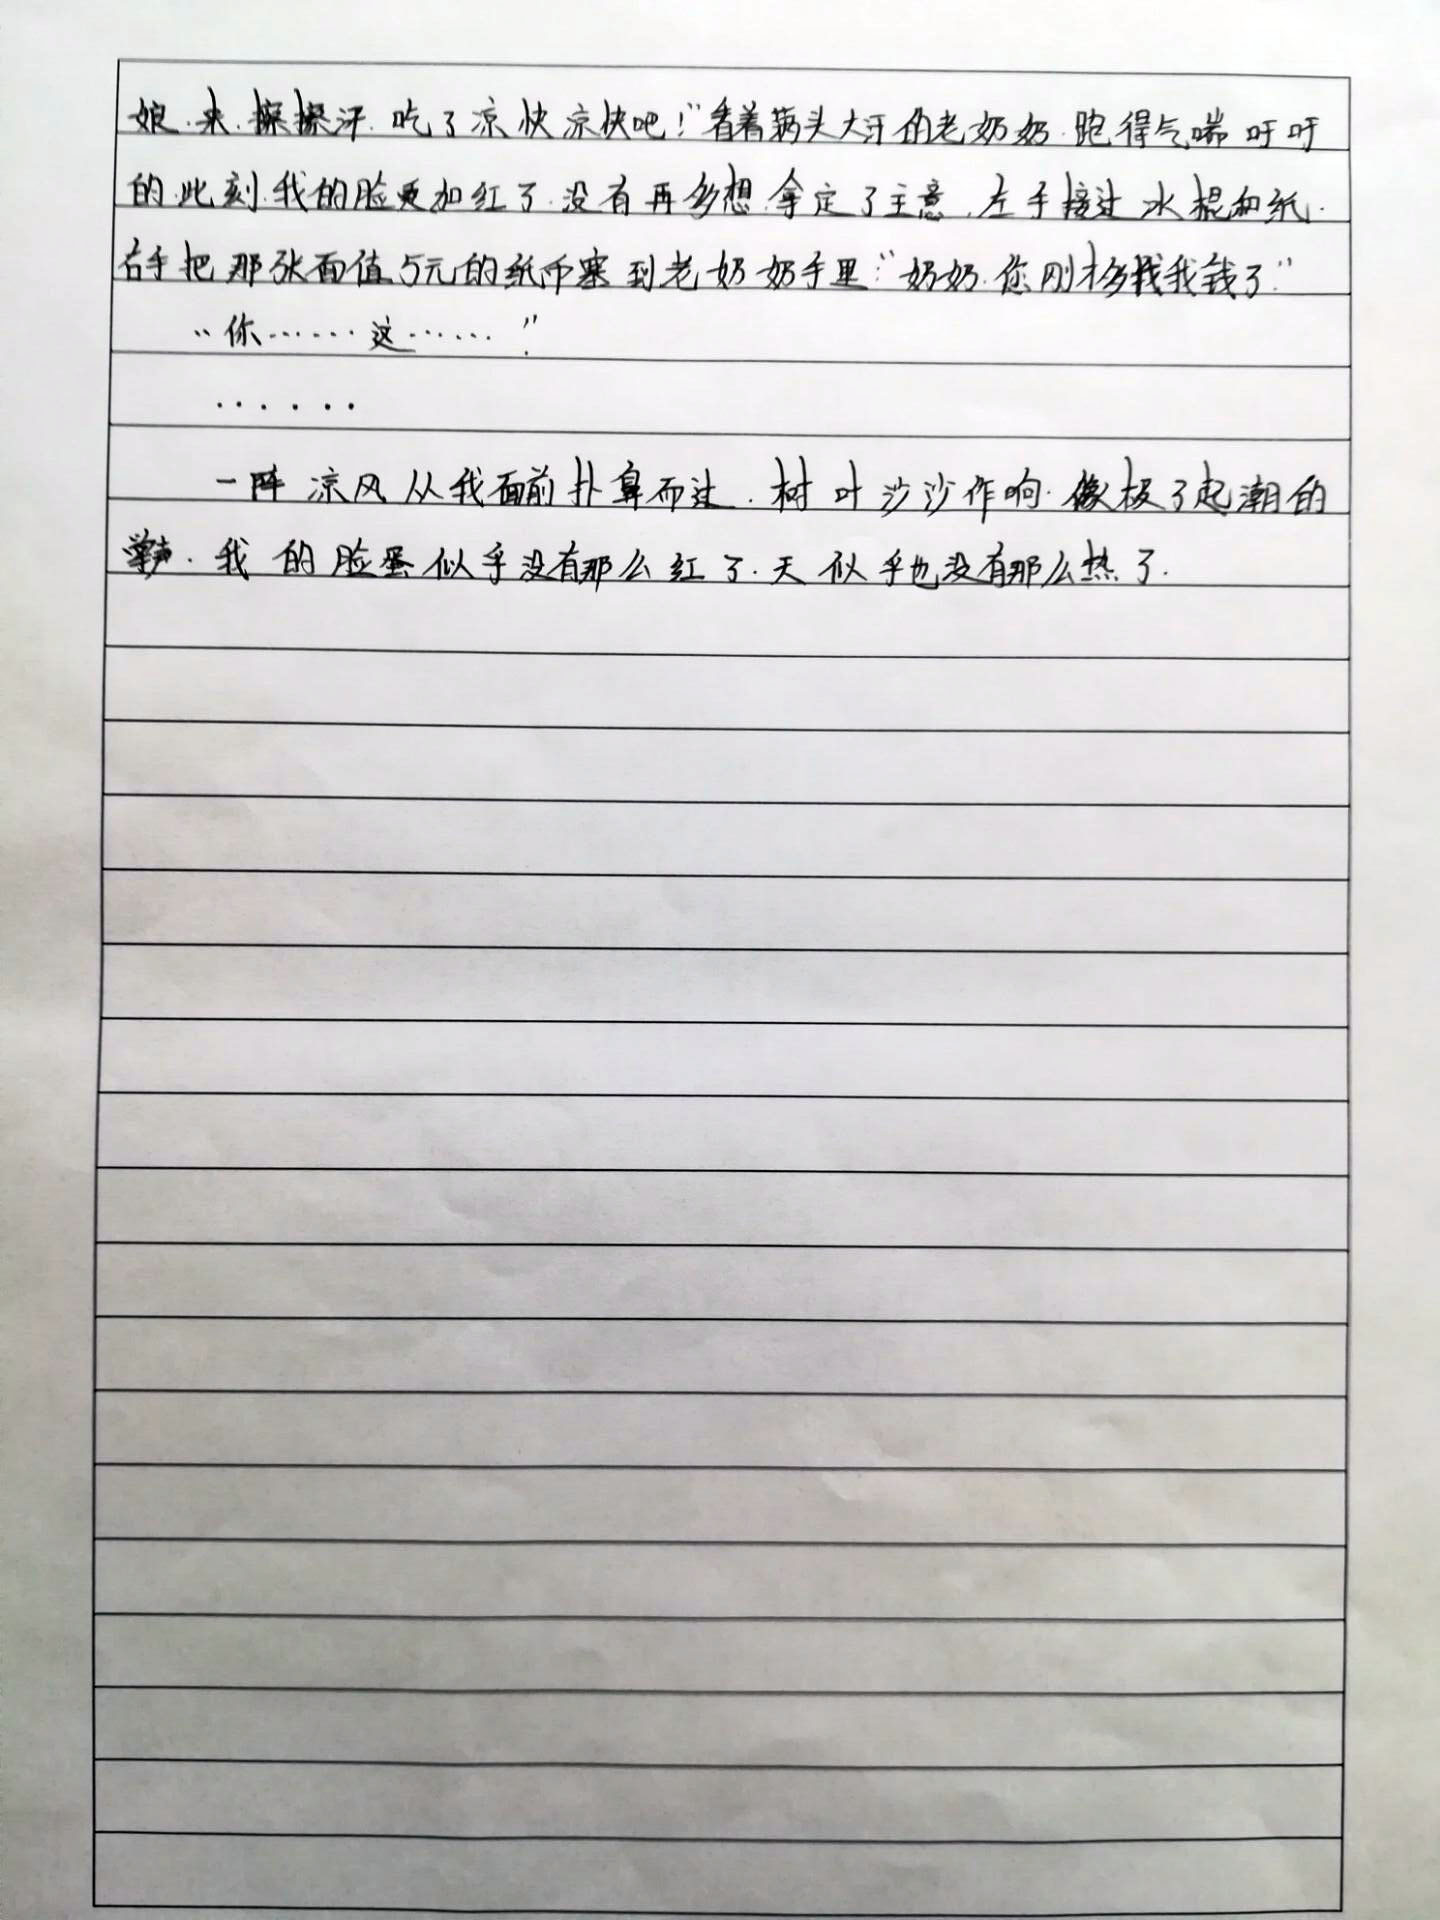 娘.来.擦擦汗.吃了凉快凉快吧！”看着满头大汗的老奶奶.跑得气喘吁吁
的.此刻.我的脸更加红了.没有再多想.拿定了主意.左手接过冰棍和纸.
右手把那张面值5元的纸币塞到老奶奶手里:“奶奶.您刚才多找我钱了.”
“你……这……”
……
一阵凉风从我面前扑鼻而过.树叶沙沙作响.像极了起潮的
声.我的脸蛋似乎没有那么红了.天似乎也没有那么热了.